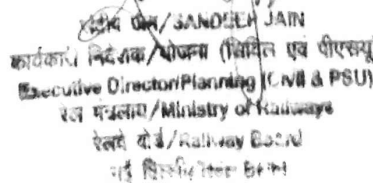 संदीप जैन/SANDEEP JAIN
कार्यकारी निदेशक/योजना (सिविल एवं पीएसयू)
Executive Director/Planning (Civil & PSU)
रेल मंत्रालय/Ministry of Railways
रेलवे बोर्ड/Railway Board
नई दिल्ली/New Delhi